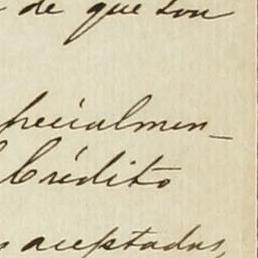 de que son
pecialmen-
Crédito
aceptadas,